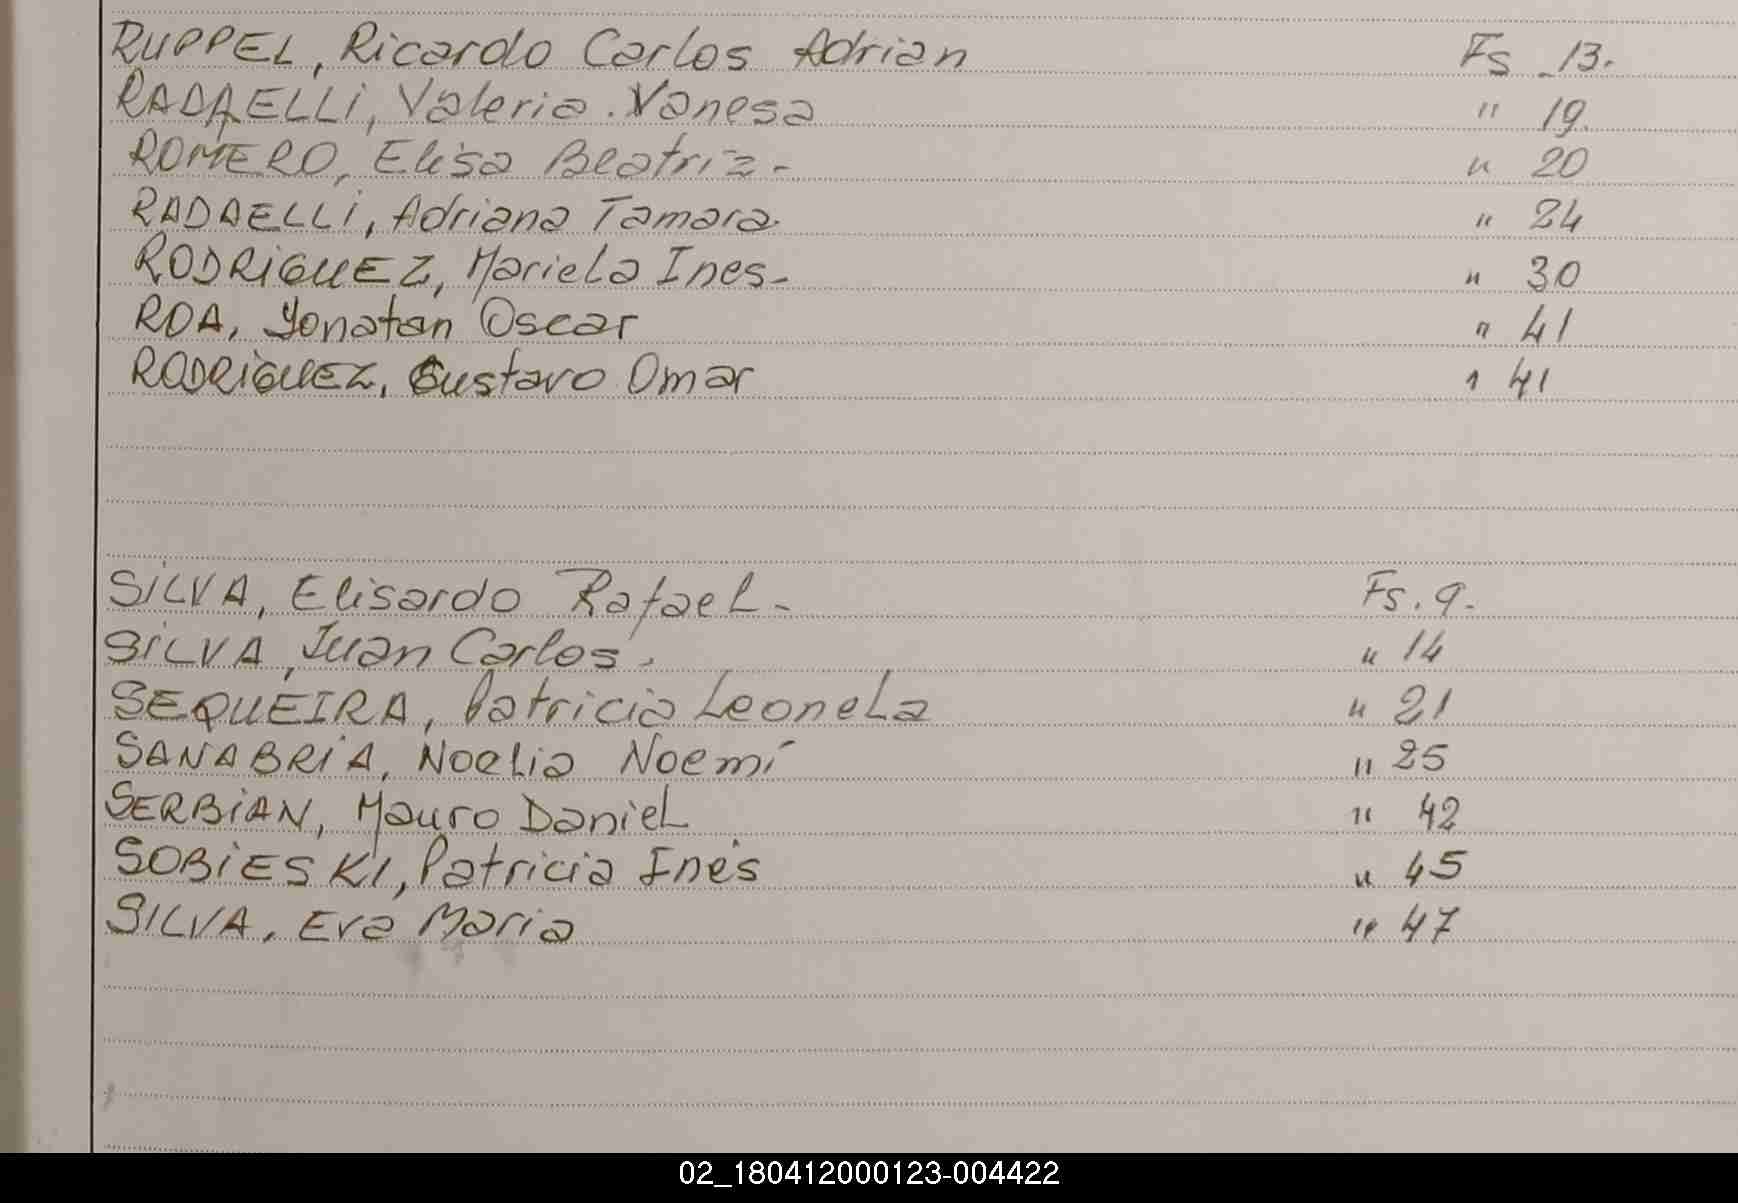 RUPPEL, Ricardo Carlos Adrian Fs 13.
RADAELLI, Valeria Vanesa " 19.
ROMERO, Elisa Beatriz - " 20
RADAELLI, Adriana Tamara " 24
RODRIGUEZ, Mariela Ines - " 30
ROA, Yonatan Oscar " 41
RODRIGUEZ, Gustavo Omar " 41
SILVA, Elisardo Rafael - Fs. 9.-
SILVA, Juan Carlos. " 14
SEQUEIRA, Patricia Leonela " 21
SANABRIA, Noelia Noemí " 25
SERBIAN, Mauro Daniel " 42
SOBIESKI, Patricia Inés " 45
SILVA, Eva Maria " 47
02_180412000123-004422